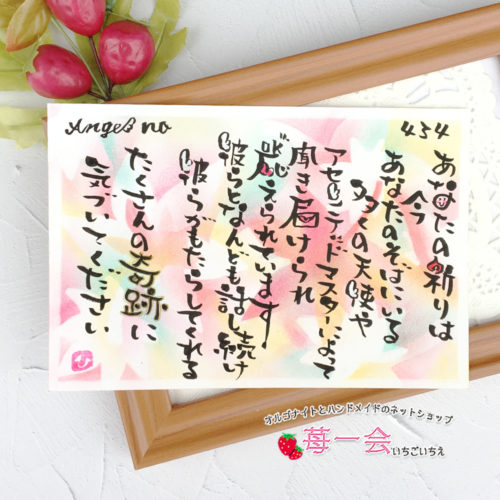 Angel no
434
あなたの祈りは
今
あなたのそばにいる
多くの天使や
アセンテッドマスターによって
聞き届けられ
応えられています
彼らとなんども話し続け
彼らがもたらしてくれる
たくさんの奇跡に
気づいてください
オルゴナイトとハンドメイドのネットショップ
苺一会
いちごいちえ